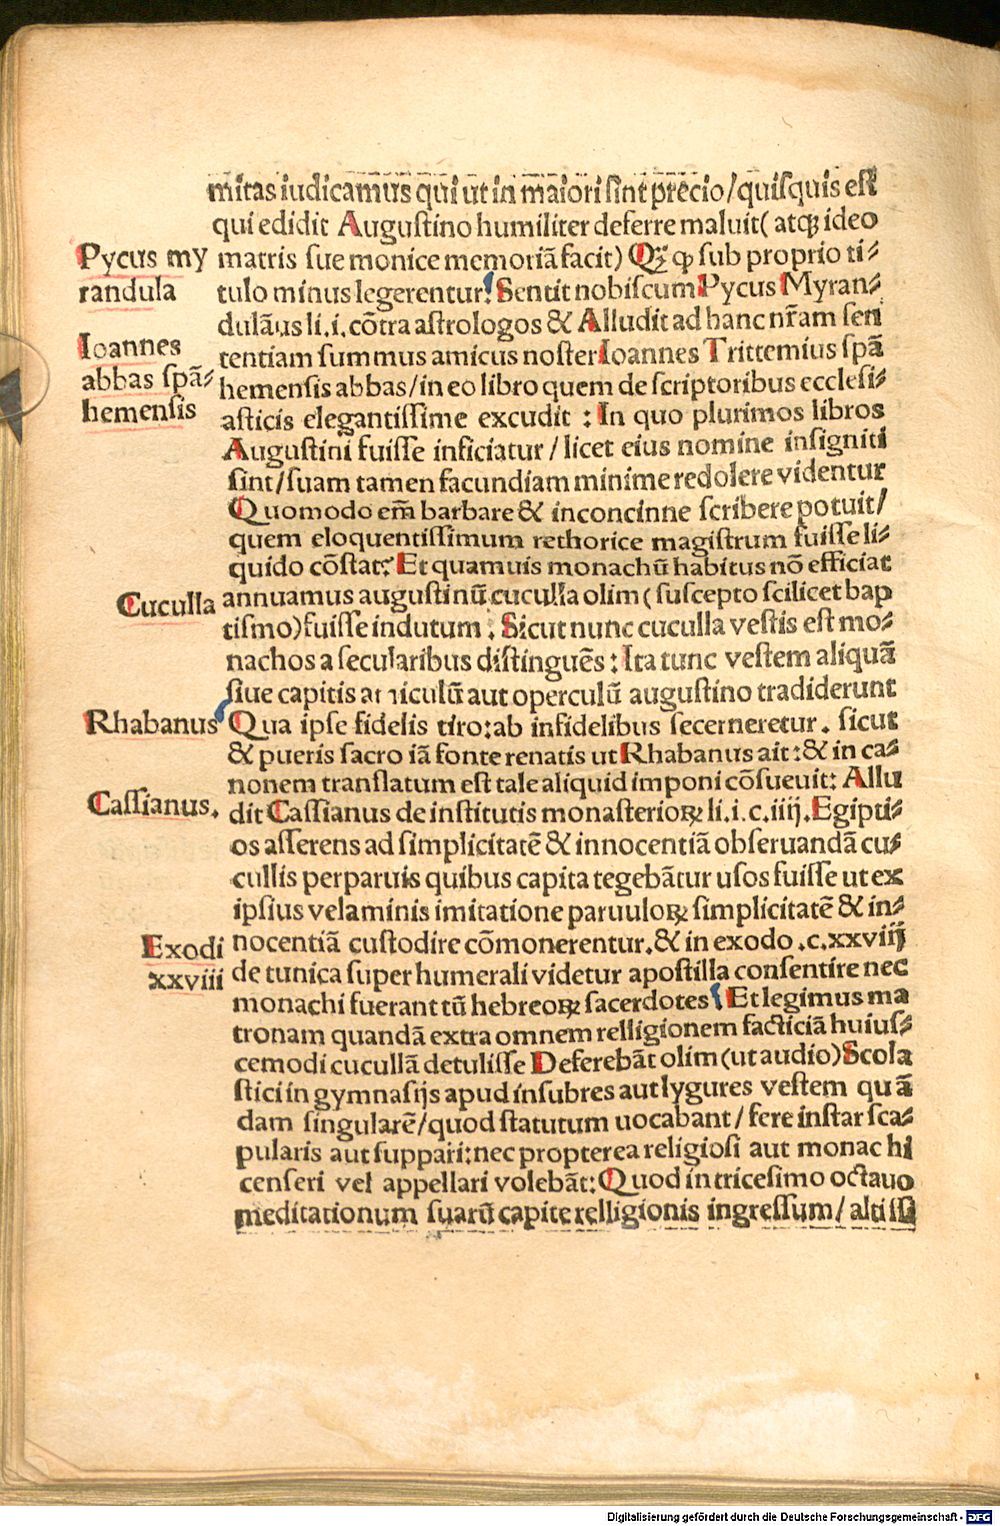 mitas iudicamus qui ut in maiori sint precio/quisquis est
qui edidit Augustino humiliter deferre maluit( atqꝫ ideo
Pycus my
randula
matris sue monice memoriā facit) Qꝫ ꝙ sub proprio ti⸗
tulo minus legerentur: Sentit nobiscum Pycus Myran⸗
dulāus li.i.cōtra astrologos & Alludit ad hanc nr̄am sen
Ioannes
abbas spā⸗
hemensis
tentiam summus amicus noster Ioannes Trittemius spā
hemensis abbas/in eo libro quem de scriptoribus ecclesi⸗
asticis elegantissime excudit : In quo plurimos libros
Augustini fuisse inficiatur/licet eius nomine insigniti
sint/suam tamen facundiam minime redolere videntur
Quomodo em̄ barbare & inconcinne scribere potuit/
quem eloquentissimum rethorice magistrum fuisse li⸗
quido cōstat: Et quamuis monachū habitus nō efficiat
Cuculla
annuamus augustinū cuculla olim ( suscepto scilicet bap
tismo)fuisse indutum : Sicut nunc cuculla vestis est mo⸗
nachos a secularibus distinguēs : Ita tunc vestem aliquā
siue capitis amiculū aut operculū augustino tradiderunt
Rhabanus
Qua ipse fidelis tiro:ab infidelibus secerneretur . sicut
& pueris sacro iā fonte renatis ut Rhabanus ait :& in ca⸗
nonem translatum est tale aliquid imponi cōsueuit: Allu
Cassianus.
dit Cassianus de institutis monasterioꝝ li.i.c.iiij.Egipti⸗
os asserens ad simplicitatē & innocentiā obseruandā cu⸗
cullis perparuis quibus capita tegebātur usos fuisse ut ex
ipsius velaminis imitatione paruuloꝝ simplicitatē & in⸗
Exodi
xxviii
nocentiā custodire cōmonerentur.& in exodo .c.xxviij
de tunica super humerali videtur apostilla consentire nec
monachi fuerant tū hebreoꝝ sacerdotes Et legimus ma
tronam quandā extra omnem relligionem facticiā huius⸗
cemodi cucullā detulisse Deferebāt olim (ut audio)Scola
stici in gymnasijs apud insubres aut lygures vestem quā
dam singularē/quod statutum uocabant/fere instar sca⸗
pularis aut suppari:nec propterea religiosi aut monachi
censeri vel appellari volebāt: Quod in tricesimo octauo
meditationum suarū capite relligionis ingressum/altissi
Digitalisierung gefördert durch die Deutsche Forschungsgemeinschaft - DFG